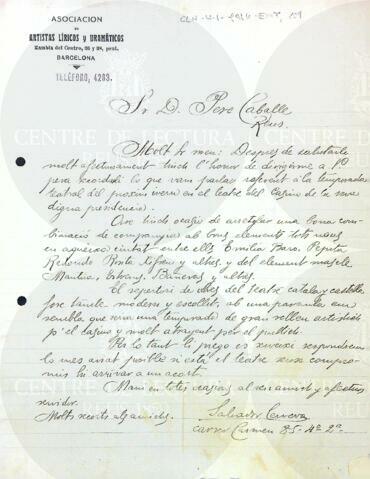 ASOCIACION
DE
ARTISTAS LÍRICOS y DRAMÁTICOS
Rambla del Centro, 36 y 38, pral.
BARCELONA
TELÉFONO, 4283.
Sr D. Pere Caballe
Reus
Molt Sr meu: Despres de saludarlo
molt afectuosament tinch l'honor de dirigirme a Vº
pera recordarli lo que vam parlar referent a la temporada
teatral del proxim ivern en el teatre del Casino de la seva
digna presidencia.
Ara tinch ocasió de arreglar una bona com-
binació de companyia ab bons elements tots nous
en aqueixa ciutat entre ells Emilia Baro, Pepita
y altres, y del element masculi
y altres.
El repertori de obres del teatre català y castellà
modern y escullit, ab una paraula em
sembla que seria una temporada de gran relleu artistich
p'el casino y molt atrayent per el publich.
Per lo tant li prego es serveixi respondrem
lo mes aviat posible si està el teatre sense compro-
mis hi arrivar a un acort.
Mani en totes ocasions al seu amich y afectuos
servidor.
Molts recorts als amichs.
Salvador Cervera
carrer Carmen 85-4º 2ª
CENTRE DE LECTURA